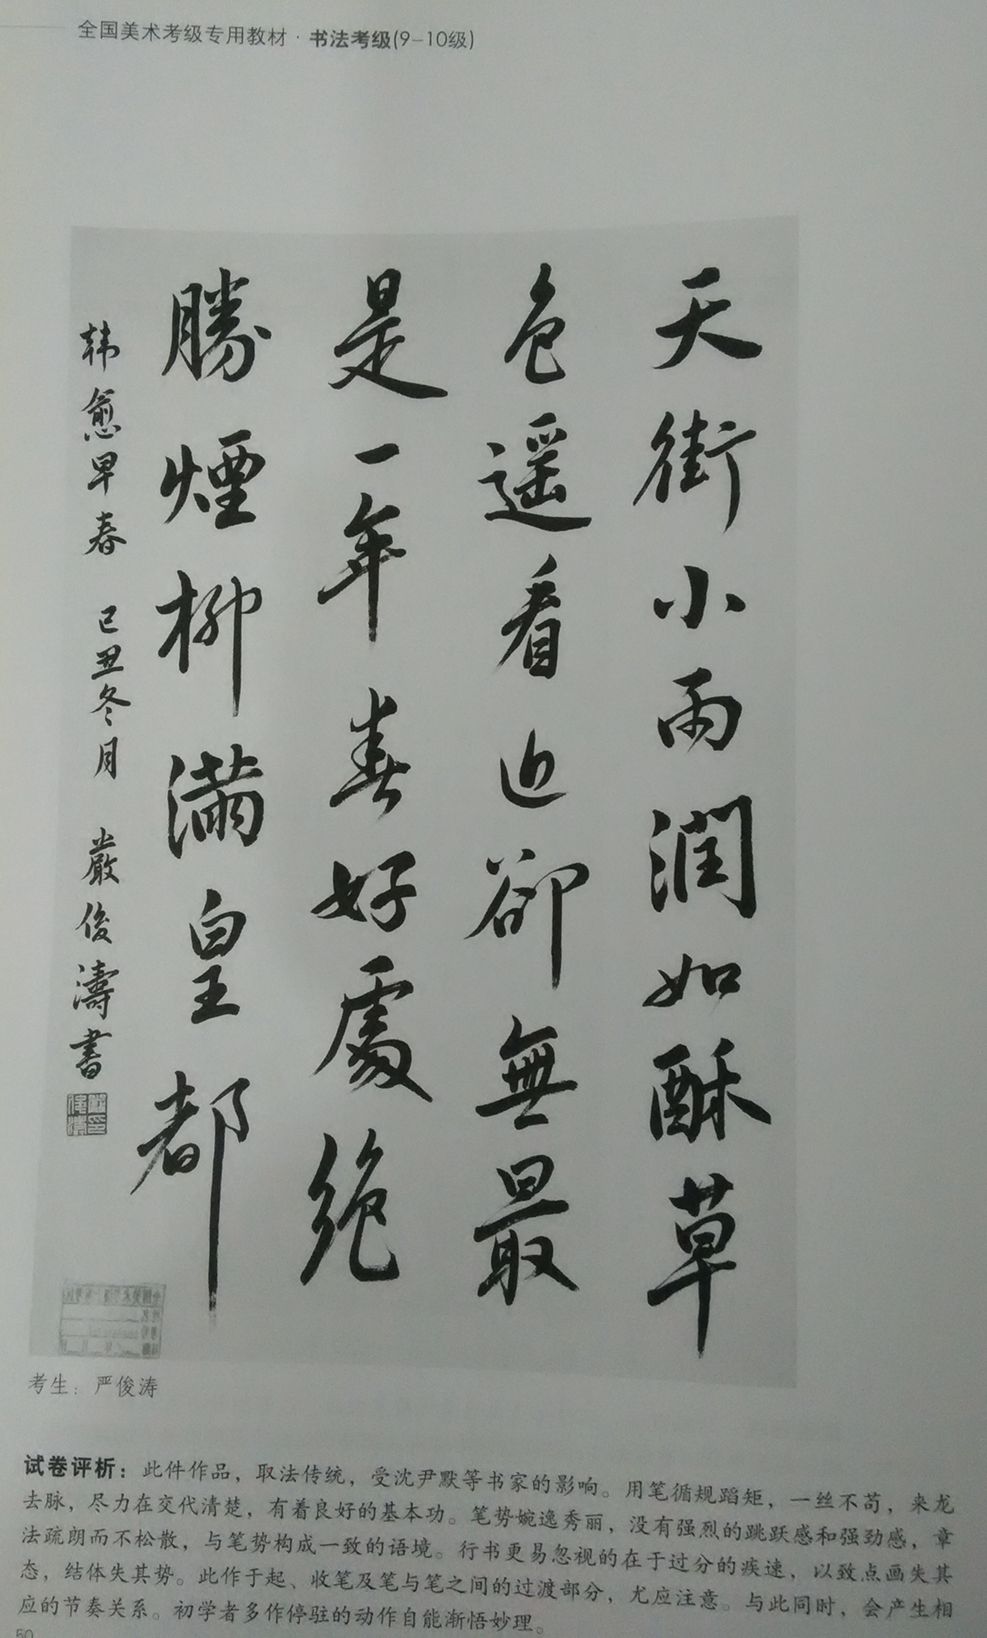 全国美术考级专用教材·书法考级(9-10级)
天街小雨润如酥草
色遥看近卻無最
是一年春好處绝
勝煙柳滿皇都
韩愈早春 己丑冬月 嚴俊濤書
考生：严俊涛
试卷评析：此件作品，取法传统，受沈尹默等书家的影响。用笔循规蹈矩，一丝不苟，来龙
去脉，尽力在交代清楚，有着良好的基本功。笔势婉逸秀丽，没有强烈的跳跃感和强劲感，章
法疏朗而不松散，与笔势构成一致的语境。行书更易忽视的在于过分的疾速，以致点画失其
态，结体失其势。此作于起、收笔及笔与笔之间的过渡部分，尤应注意。与此同时，会产生相
应的节奏关系。初学者多作停驻的动作自能渐悟妙理。
50